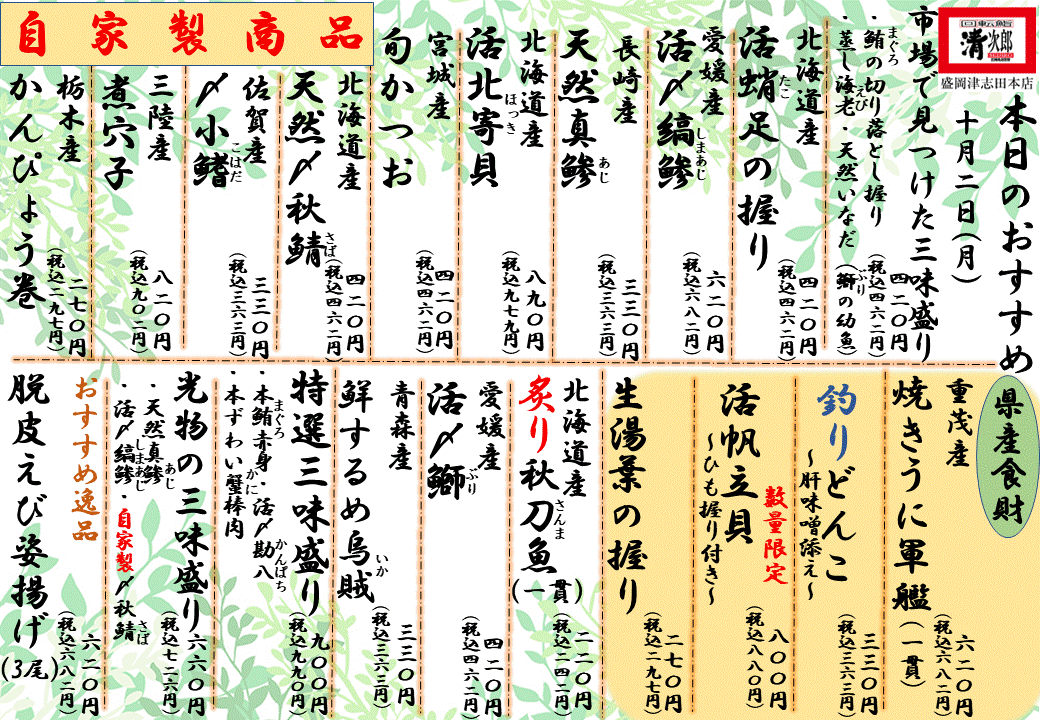 回転鮨
清次郎
SEIJIRO
盛岡津志田本店
本日のおすすめ
十月二日(月)
市場で見つけた三味盛り
・鮪の切り落とし握り
まぐろ
・蒸し海老・天然いなだ(鰤の幼魚)
えび
ぶり
四二〇円
(税込四六二円)
北海道産
活蛸足の握り
たこ
四二〇円
(税込四六二円)
愛媛産
活〆縞鯵
しまあじ
六二〇円
(税込六八二円)
長崎産
天然真鯵
あじ
三三〇円
(税込三六三円)
北海道産
活北寄貝
ほっき
八九〇円
(税込九七九円)
宮城産
旬かつお
四二〇円
(税込四六二円)
北海道産
天然〆秋鯖
さば
四二〇円
(税込四六二円)
自家製商品
佐賀産
〆小鰭
こはだ
三三〇円
(税込三六三円)
三陸産
煮穴子
八二〇円
(税込九〇二円)
栃木産
かんぴょう巻
二七〇円
(税込二九七円)
県産食財
重茂産
焼きうに軍艦(一貫)
六二〇円
(税込六八二円)
釣りどんこ
~肝味噌添え~
三三〇円
(税込三六三円)
数量限定
活帆立貝
~ひも握り付き~
八〇〇円
(税込八八〇円)
生湯葉の握り
二七〇円
(税込二九七円)
北海道産
炙り秋刀魚(一貫)
さんま
二二〇円
(税込二四二円)
愛媛産
活〆鰤
ぶり
四二〇円
(税込四六二円)
青森産
鮮するめ烏賊
いか
三三〇円
(税込三六三円)
特選三味盛り
・本鮪赤身・活〆勘八
まぐろ
かんぱち
・本ずわい蟹棒肉
かに
九〇〇円
(税込九九〇円)
光物の三味盛り
・天然真鯵
あじ
・活〆縞鯵・自家製〆秋鯖
しまあじ
さば
六六〇円
(税込七二六円)
おすすめ逸品
脱皮えび姿揚げ(3尾)
六二〇円
(税込六八二円)